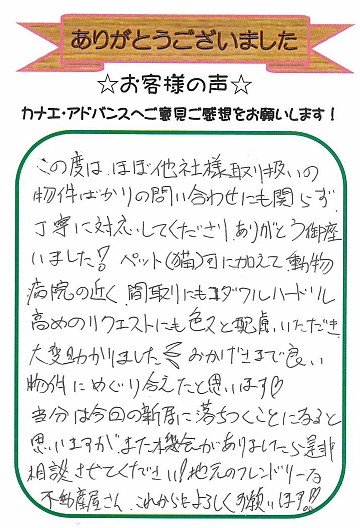 ありがとうございました
☆お客様の声☆
カナエ・アドバンスへご意見ご感想をお願いします!
この度は、ほぼ他社様取り扱いの
物件ばかりの問い合わせにも関らず
丁寧に対応してくださり、ありがとう御座
いました!ペット(猫)可に加えて動物
病院の近く、間取りにもコダワルハードル
高めのリクエストにも色々と配慮いただき
大変助かりました おかげさまで良い
物件にめぐり合えたと思います♡
当分は今回の新居に落ちつくことになると
思いますが、また機会がありましたら是非
相談させてください!地元のフレンドリーな
不動産屋さん、これからもよろしくお願いします!!